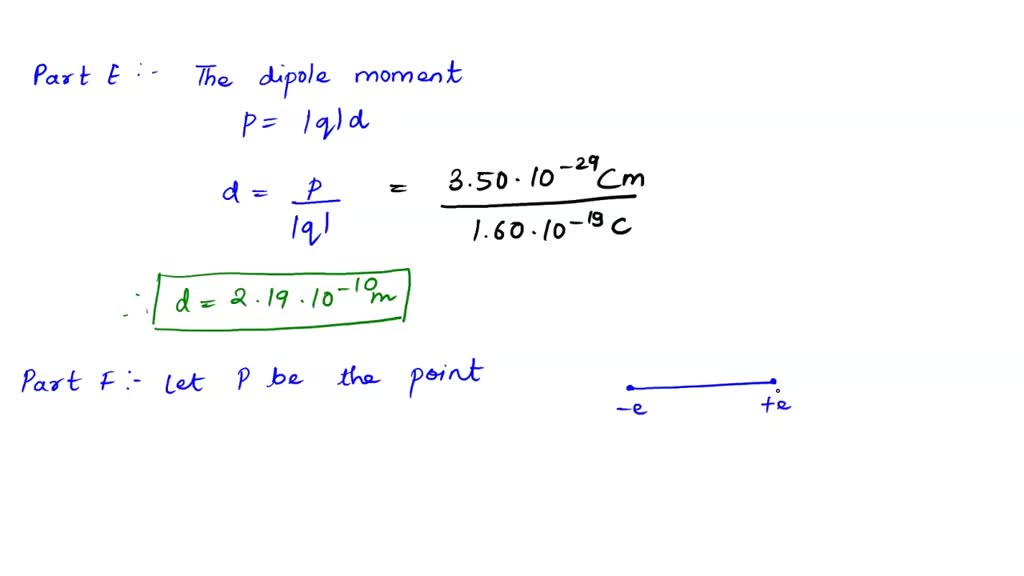 Part E :- The dipole moment
P = |q|d
d = P / |q| = 3.50 · 10⁻²⁹ Cm / 1.60 · 10⁻¹⁹ C
∴ d = 2.19 · 10⁻¹⁰ m
Part F :- Let P be the point
-e +e